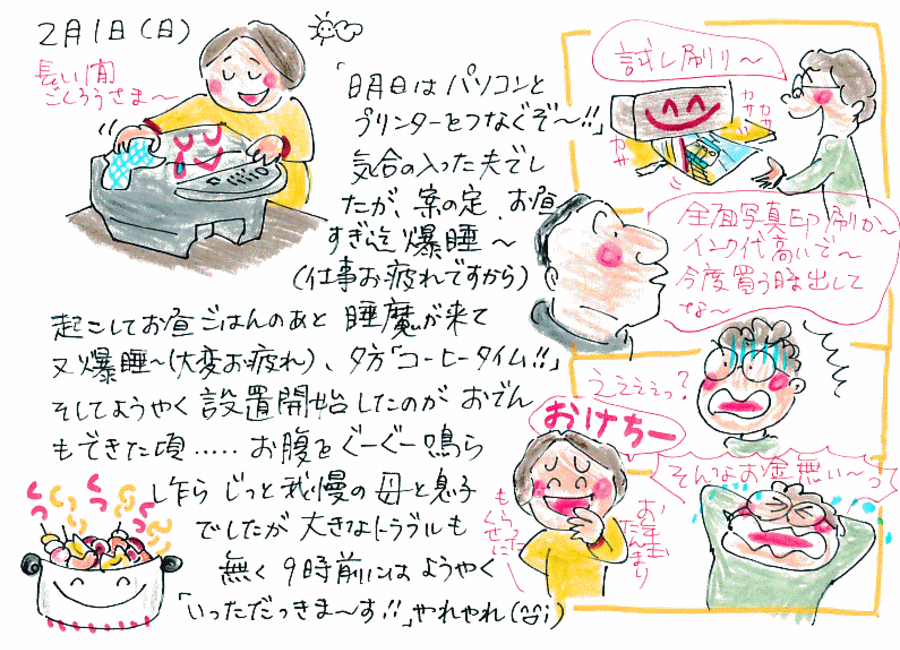 2月1日(日)
長い間
ごくろうさま〜
「明日はパソコンと
プリンターをつなぐぞ〜!!」
気合の入った夫でし
たが、案の定、お昼
すぎ迄爆睡〜
(仕事お疲れですから)
起こしてお昼ごはんのあと 睡魔が来て
又爆睡〜(大変お疲れ)、夕方「コーヒータイム!!」
そしてようやく設置開始したのが おでん
もできた頃..... お腹をぐーぐー鳴ら
し乍ら じっと我慢の母と息子
でしたが 大きなトラブルも
無く 9時前にはようやく
「いっただっきま〜す!!」やれやれ(^^;)
試し刷り〜
カサ
カサ
カサ
全面写真印刷か〜
インク代高いで〜
今度買う時出して
な〜
えええぇっ?
おけちー
お年玉
たんまり
もらった
くせに
そんなお金無い〜っ